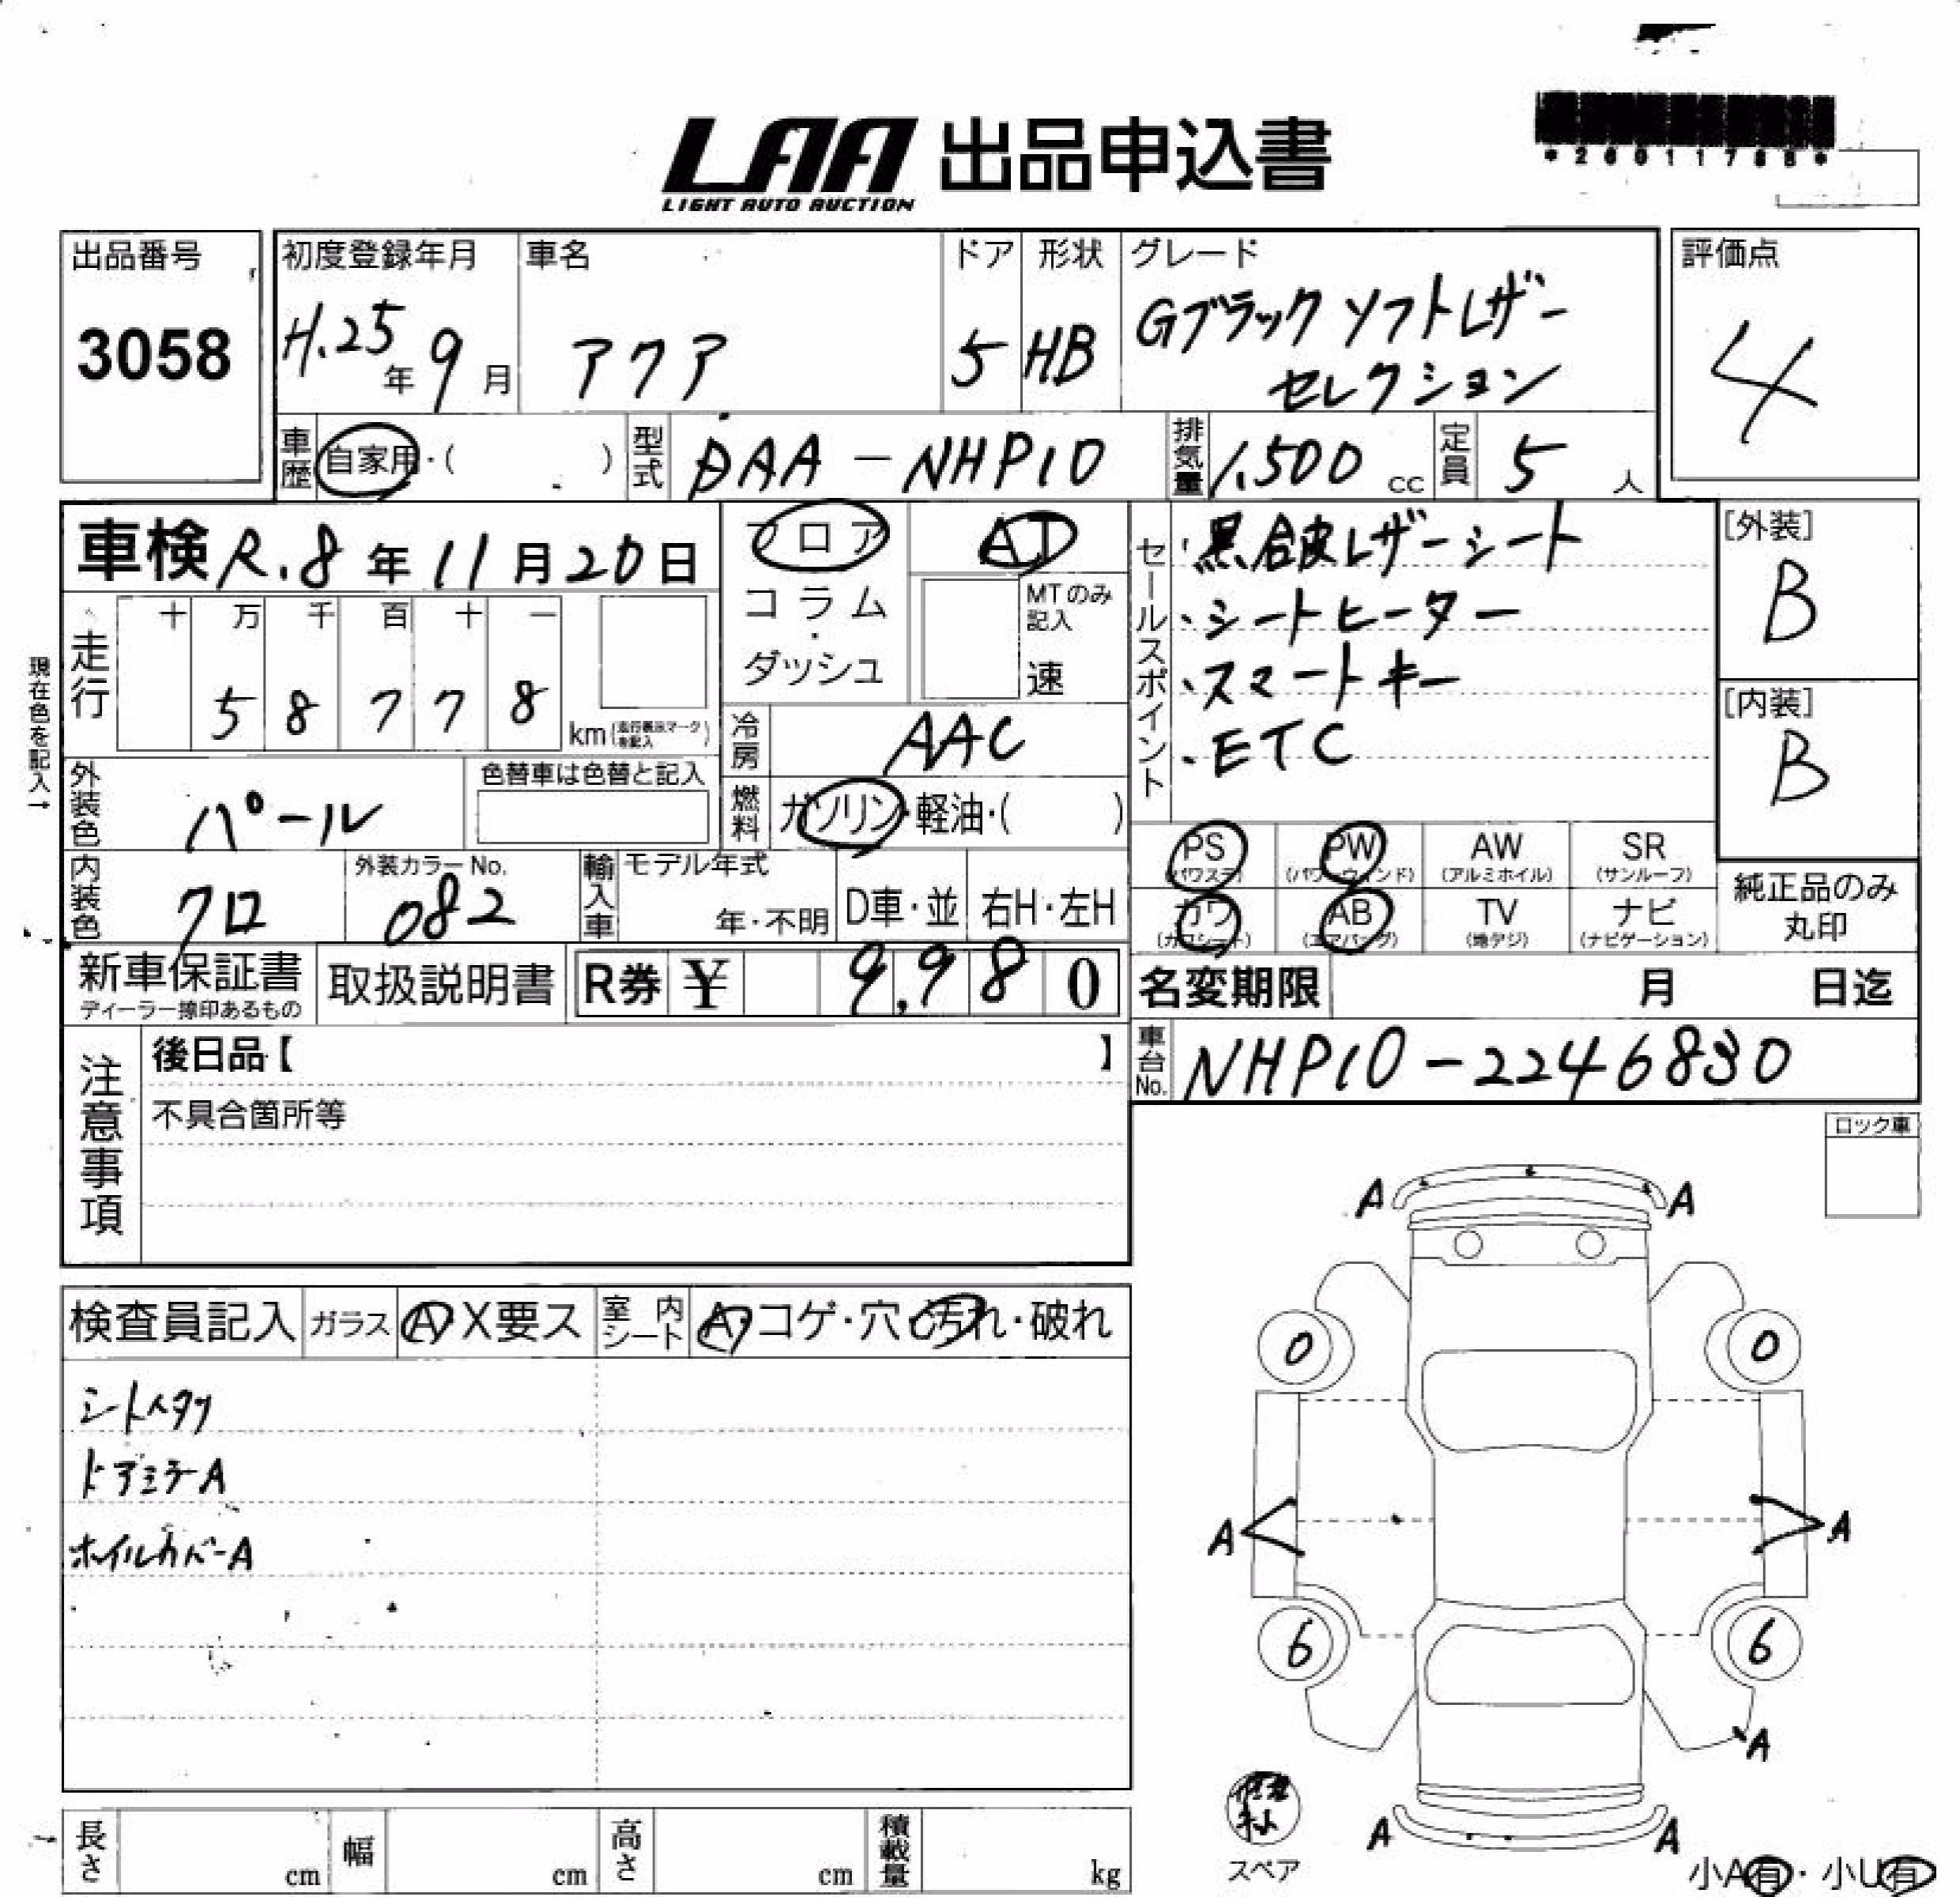 LAA 出品申込書
LIGHT AUTO AUCTION
出品番号
3058
初度登録年月
H.25年9月
車名
アクア
ドア
5
形状
HB
グレード
Gブラックソフトレザー
セレクション
評価点
4
車歴
自家用・( )
型式
DAA-NHP10
排気量
1,500cc
定員
5人
車検 R.8年11月20日
フロア
コラム
・
ダッシュ
AT
MTのみ
記入
速
セールスポイント
・黒合皮レザーシート
・シートヒーター
・スマートキー
・ETC
[外装]
B
[内装]
B
現在色を記入→
走行
十 万 千 百 十 一
5 8 7 7 8
km(走行表示マークを記入)
冷房
AAC
燃料
ガソリン・軽油・( )
外装色
パール
色替車は色替と記入
PS (パワステ)
PW (パワーウィンド)
AW (アルミホイル)
SR (サンルーフ)
カワ (カワシート)
AB (エアバッグ)
TV (地デジ)
ナビ (ナビゲーション)
純正品のみ
丸印
内装色
クロ
外装カラーNo.
082
輸入車
モデル年式
年・不明
D車・並
右H・左H
新車保証書
ディーラー捺印あるもの
取扱説明書
R券 ¥ 9,980
名変期限 月 日迄
車台No.
NHP10-2246830
注意事項
後日品【 】
不具合箇所等
ロック車
検査員記入
ガラス
A・X要ス
室内シート
A・コゲ・穴・汚れ・破れ
シートヘタリ
ドアミラーA
ホイルカバーA
A A
0 0
A A
6 6
A
A A
スペア
小A有・小U有
長さ cm
幅 cm
高さ cm
積載量 kg